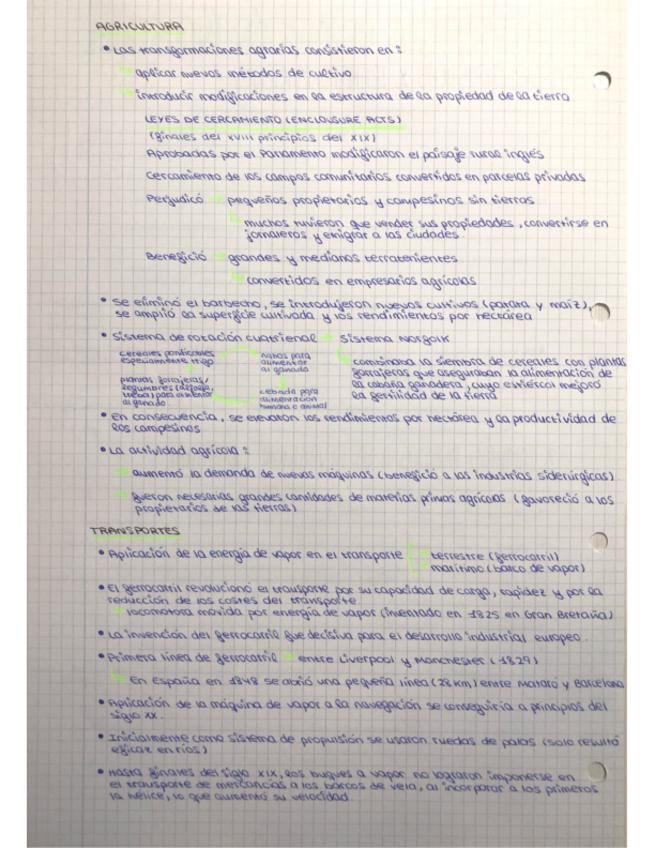 AGRICULTURA
• Las transformaciones agrarias consistieron en:
aplicar nuevos métodos de cultivo
introducir modificaciones en la estructura de la propiedad de la tierra
LEYES DE CERCAMIENTO (ENCLOUSURE ACTS)
(finales del XVIII principios del XIX)
Aprobadas por el Parlamento modificaron el paisaje rural inglés
Cercamiento de los campos comunitarios convertidos en parcelas privadas
Perjudicó → pequeños propietarios y campesinos sin tierras
muchos tuvieron que vender sus propiedades, convertirse en
jornaleros y emigrar a las ciudades.
Benefició → grandes y medianos terratenientes
convertidos en empresarios agrícolas
• Se eliminó el barbecho, se introdujeron nuevos cultivos (patata y maíz),
se amplió la superficie cultivada y los rendimientos por hectárea
• Sistema de rotación cuatrienal → Sistema Norfolk
cereales panificables
especialmente trigo
nabos para
alimentar
al ganado
plantas forrajeras/
legumbres (alfalfa,
trébol) para alimentar
al ganado
cebada para
alimentación
humana o animal
combinaba la siembra de cereales con plantas
forrajeras que aseguraban la alimentación de
la cabaña ganadera, cuyo estiércol mejoró
la fertilidad de la tierra
• En consecuencia, se elevaron los rendimientos por hectárea y la productividad de
los campesinos
• La actividad agrícola:
aumentó la demanda de nuevas máquinas (benefició a las industrias siderúrgicas)
fueron necesarias grandes cantidades de materias primas agrícolas (favoreció a los
propietarios de las tierras)
TRANSPORTES
• Aplicación de la energía de vapor en el transporte
terrestre (ferrocarril)
marítimo (barco de vapor)
• El ferrocarril revolucionó el transporte por su capacidad de carga, rapidez y por la
reducción de los costes del transporte
locomotora movida por energía de vapor (inventado en 1825 en Gran Bretaña)
• La invención del ferrocarril fue decisiva para el desarrollo industrial europeo.
• Primera línea de ferrocarril → entre Liverpool y Manchester (1829)
En España en 1848 se abrió una pequeña línea (28 km) entre Mataró y Barcelona
• Aplicación de la máquina de vapor a la navegación se conseguiría a principios del
siglo XX.
• Inicialmente como sistema de propulsión se usaron ruedas de palas (solo resultó
eficaz en ríos)
• Hasta finales del siglo XIX, los buques a vapor no lograron imponerse en
el transporte de mercancías a los barcos de vela, al incorporar a los primeros
la hélice, lo que aumentó su velocidad.